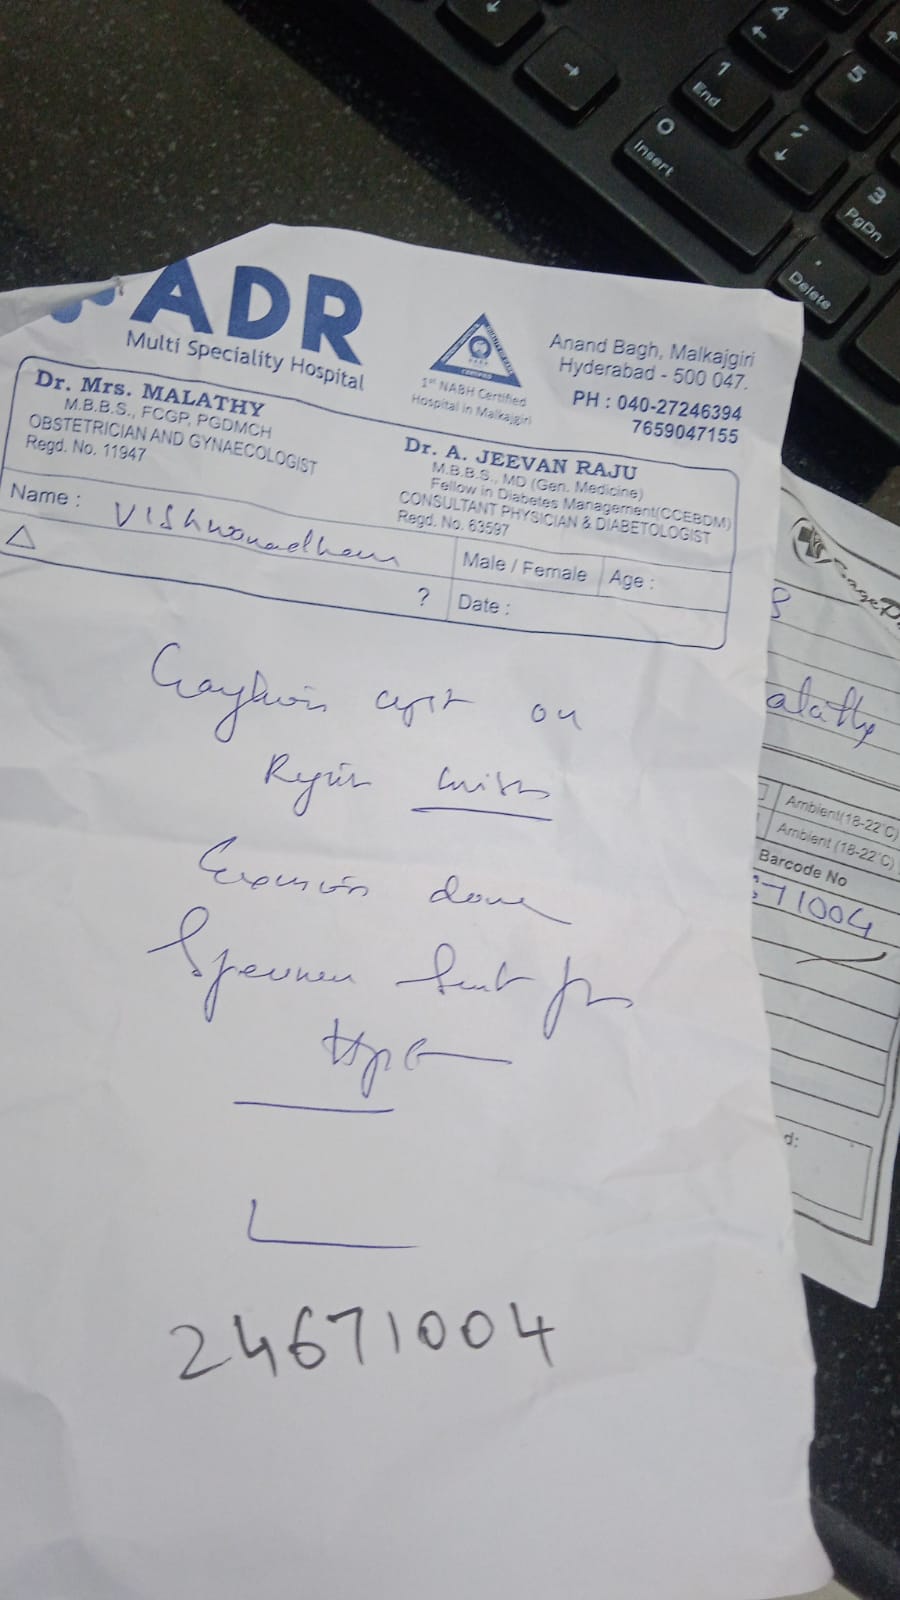 ADR
Multi Speciality Hospital
1st NABH Certified
Hospital in Malkajgiri
CERTIFIED
Anand Bagh, Malkajgiri
Hyderabad - 500 047.
PH : 040-27246394
7659047155
Dr. Mrs. MALATHY
M.B.B.S., FCGP, PGDMCH
OBSTETRICIAN AND GYNAECOLOGIST
Regd. No. 11947
Dr. A. JEEVAN RAJU
M.B.B.S., MD (Gen. Medicine)
Fellow in Diabetes Management(CCEBDM)
CONSULTANT PHYSICIAN & DIABETOLOGIST
Regd. No. 63597
Name : Vishwanadham
Male / Female Age :
△ ? Date :
cyst on
Excision done
Specimen Sent for
HPE
24671004
alathy
Ambient(18-22°C)
Ambient (18-22°C)
Barcode No
71004
d:
4
←
5
1
End
0
Insert
2
↓
3
PgDn
.
Delete
→